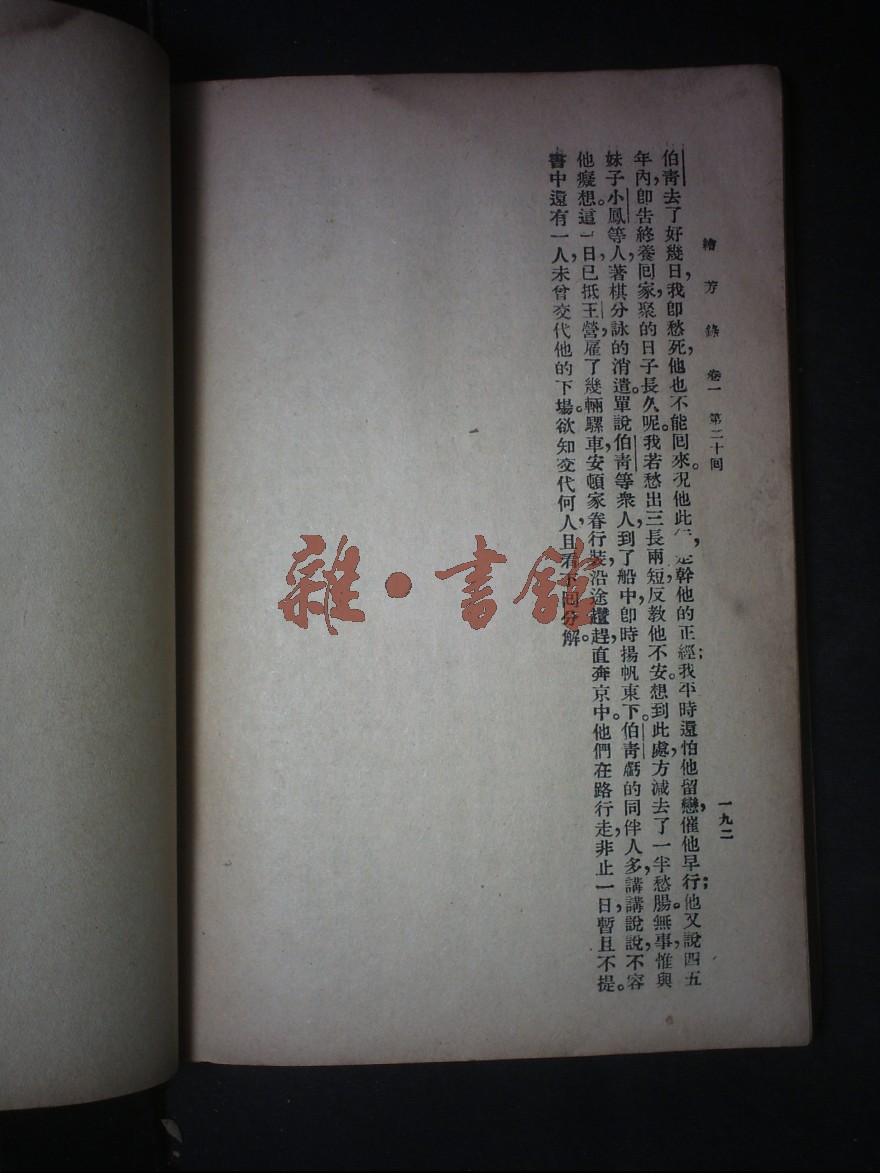 繪芳錄 卷一 第二十回 一九二
伯靑去了好幾日，我卽愁死，他也不能回來。況他此 是幹他的正經；我平時還怕他留戀，催他早行；他又說四五
年內，卽告終養回家，聚的日子長久呢。我若愁出三長兩短，反教他不安。想到此處，方減去了一半愁腸。無事，惟與
妹子小鳳等人，著棋分詠的消遣。單說伯靑等衆人，到了船中，卽時揚帆東下。伯靑虧的同伴人多，講講說說，不容
他癡想。這一日，已抵王營，雇了幾輛騾車，安頓家眷行裝，沿途趲趕，直奔京中。他們在路行走，非止一日，暫且不提。
書中還有一人，未曾交代他的下場。欲知交代何人，且看下回分解。
雜·書館